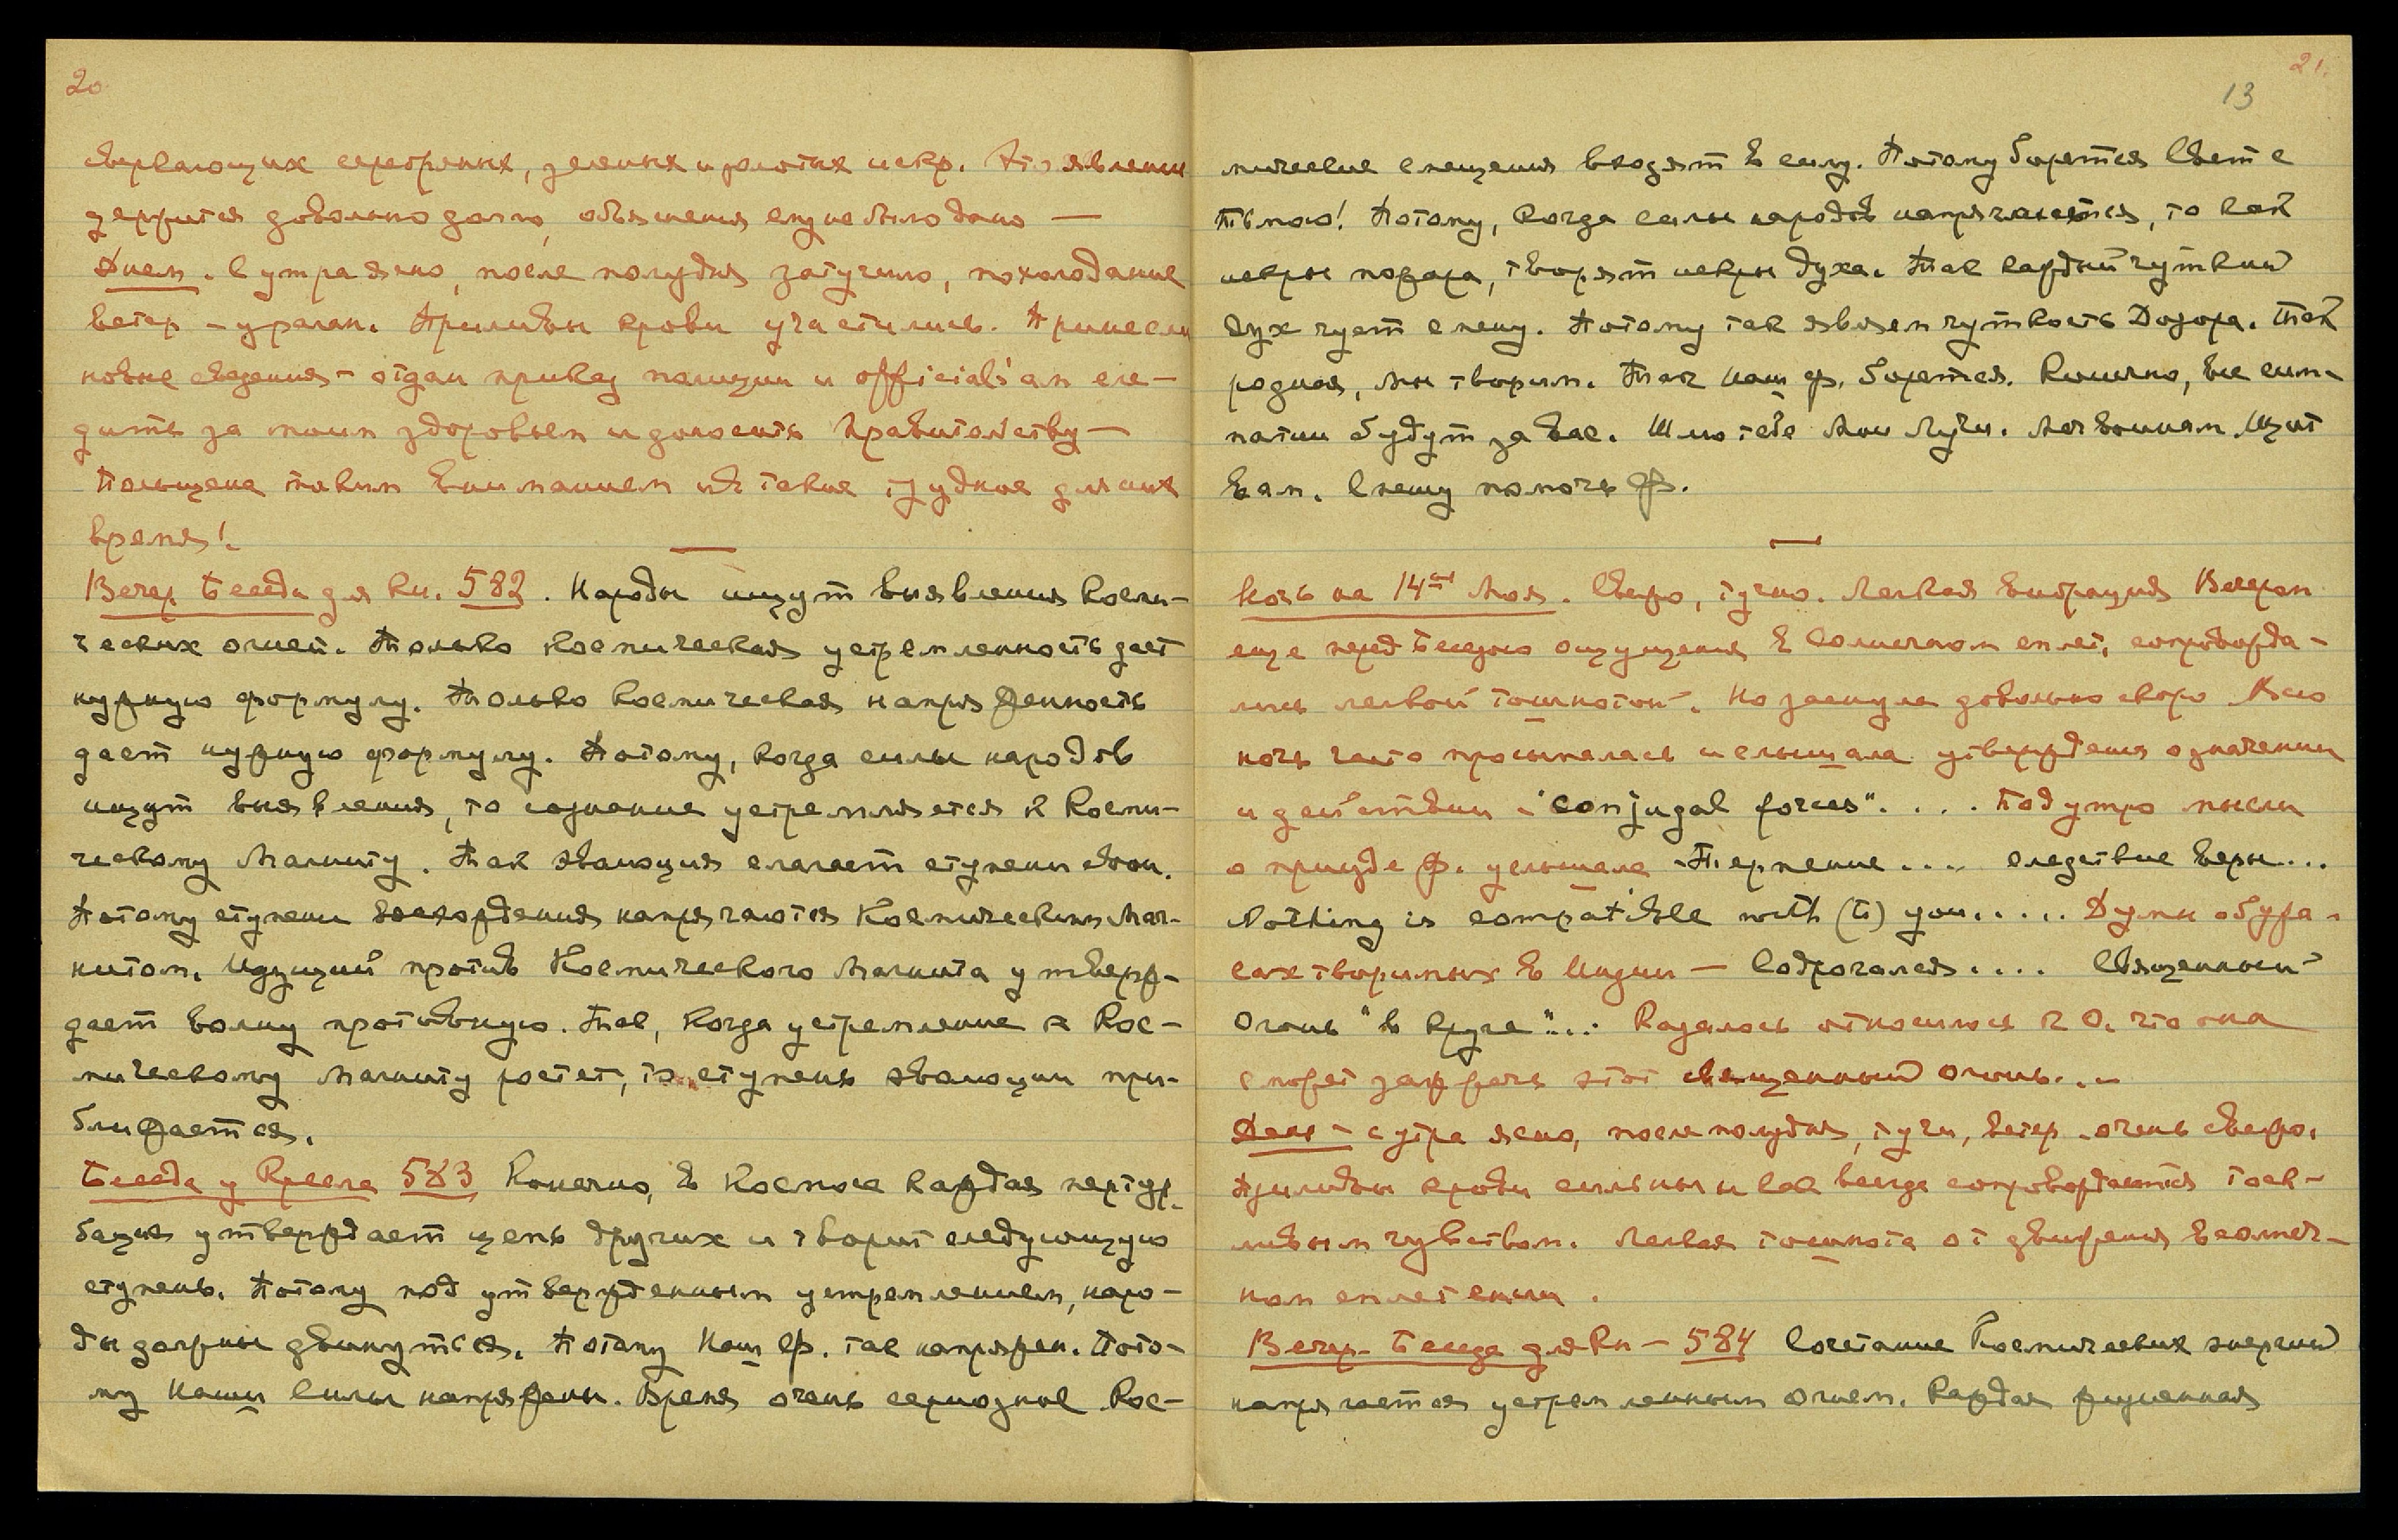 20
сверкающих серебряных, зеленых и золотых искр. Это явление
держится довольно долго, объяснения ему не было дано —
Днем. С утра ясно, после полудня затучило, похолодание
ветер – ураган. Приливы крови участились. Принесли
новые сведения – отдан приказ полиции и official'ам сле-
дить за моим здоровьем и доносить Правительству —
Польщена таким вниманием в такое трудное для них
время!
Вечер Беседа для Кн. 582. Народы ищут выявления Косми-
ческих огней. Только космическая устремленность дает
нужную формулу. Только Космическая напряженность
дает нужную формулу. Потому, когда силы народов
ищут выявления, то сознание устремляется к Косми-
ческому Магниту. Так эволюция слагает ступени свои.
Потому ступени восхождения напрягаются Космическим Маг-
нитом. Идущий против Космического Магнита утверж-
дает волну противную. Так, когда устремление к Кос-
мическому Магниту растет, то ступень эволюции при-
ближается.
Беседа у Кресла 583 Конечно, в Космосе каждая пертур-
бация утверждает цепь других и творит следующую
ступень. Потому под утвержденным устремлением, наро-
ды должны двинуться. Потому Наш ф. так напряжен. Пото-
му Наши Силы напряжены. Время очень серьозное Кос-
21.
13
мические смещения входят в силу. Потому борется Свет с
тьмою! Потому, когда силы народов напрягаются, то как
искры пожара, творят искры духа. Так каждый чуткий
дух чует смену. Потому так явлен чуткость Дозора. Так
родная, мы творим. Так Наш ф. борется. Конечно, все сим-
патии будут за вас. Шлю тебе Мои Лучи. Мог воинам Щит
вам. Спешу помочь ф.
Ночь на 14ое Мая. Свежо, тучно. Легкая вибрация Вечером
еще перед Беседою ощущения в Солнечном сплет. сопровожда-
лись легкой тошнотой. Но заснула довольно скоро Всю
ночь часто просыпалась и слышала утверждения о значении
и действии – "conjugal forces". . . . Под утро мысли
о приезде ф. услышала – Терпение .... следствие веры...
Nothing is compatible with (to) you..... Думы об ужа-
сах творимых в Индии — Содрогался.... Священный
Огонь "в круге"... Казалось относилось к О. что она
сможет зажжечь этот священный огонь...
День – с утра ясно, после полудня, тучи, ветер – очень свежо.
Приливы крови сильны и как всегда сопровождаются тоск-
ливым чувством. Легкая тошнота от движения в солнеч-
ном сплетении.
Вечер – Беседа для Кн – 584 Сочетание Космических энергий
напрягается устремленным огнем. Каждая жизненная